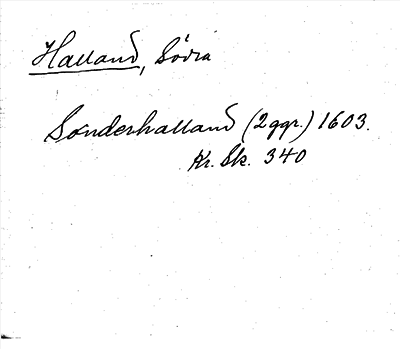 Halland, Södra
Sønderhalland (2 ggr.) 1603.
Kr. Sk. 340